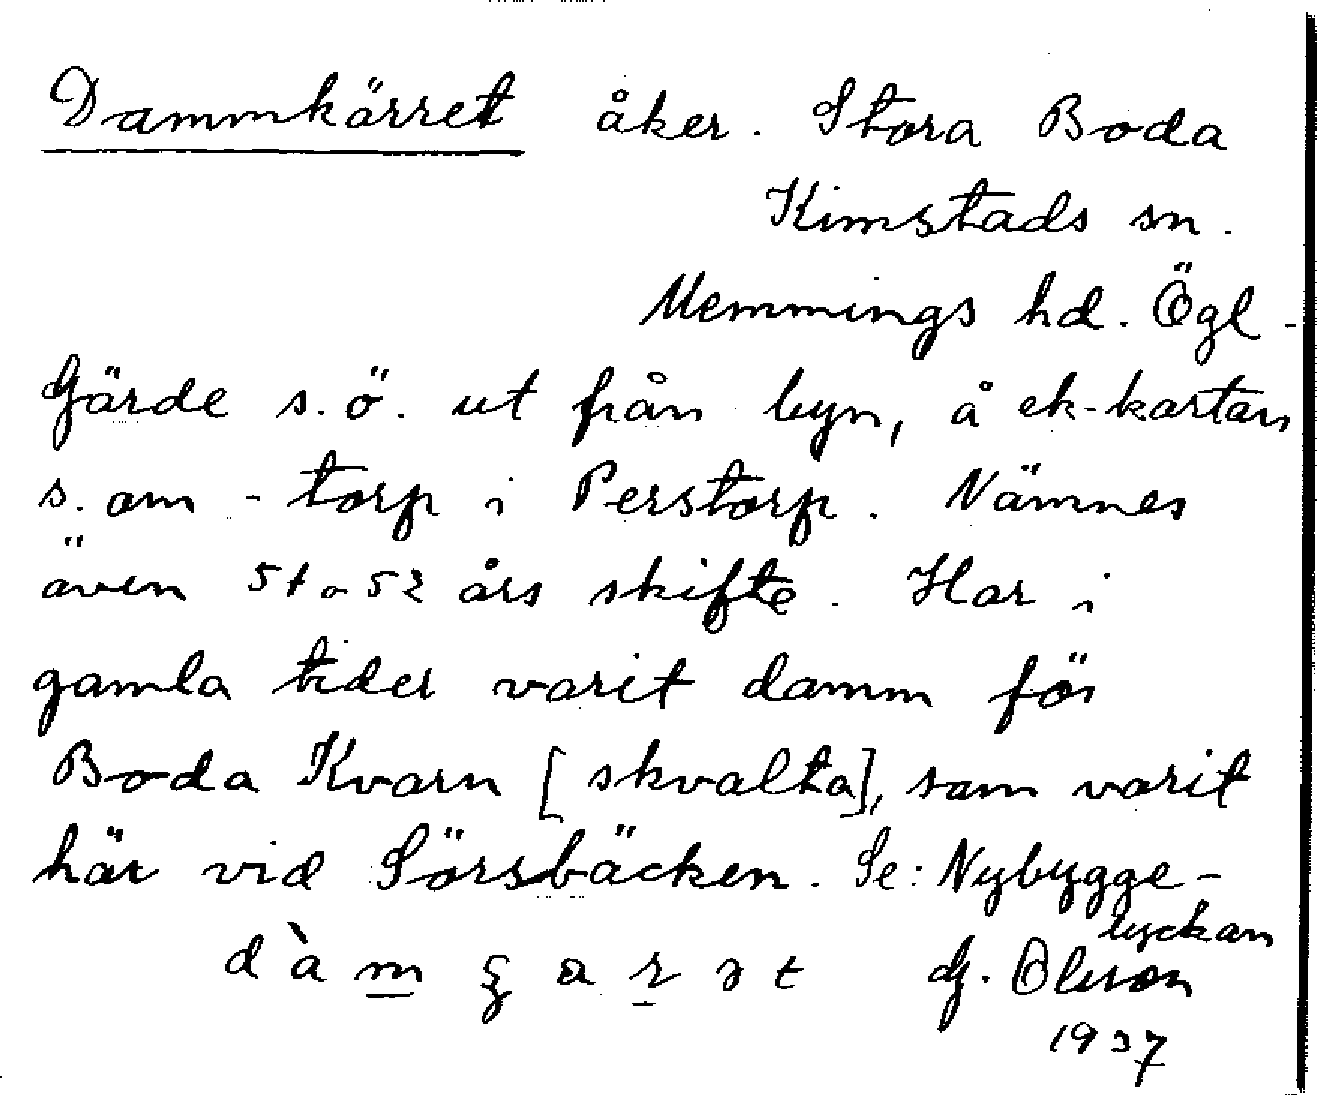 Dammkärret åker. Stora Boda
Kimstads sn.
Memmings hd. Ögl-
Gärde s.ö. ut från byn, å ek-kartan
s. om - torp i Perstorp. Nämnes
även 51 o 52 års skifte. Har i
gamla tider varit damm för
Boda Kvarn [skvalta], som varit
här vid Sörsbäcken. Se: Nybygge-
lyckan
dàm a r ə t G. Olsson
1937